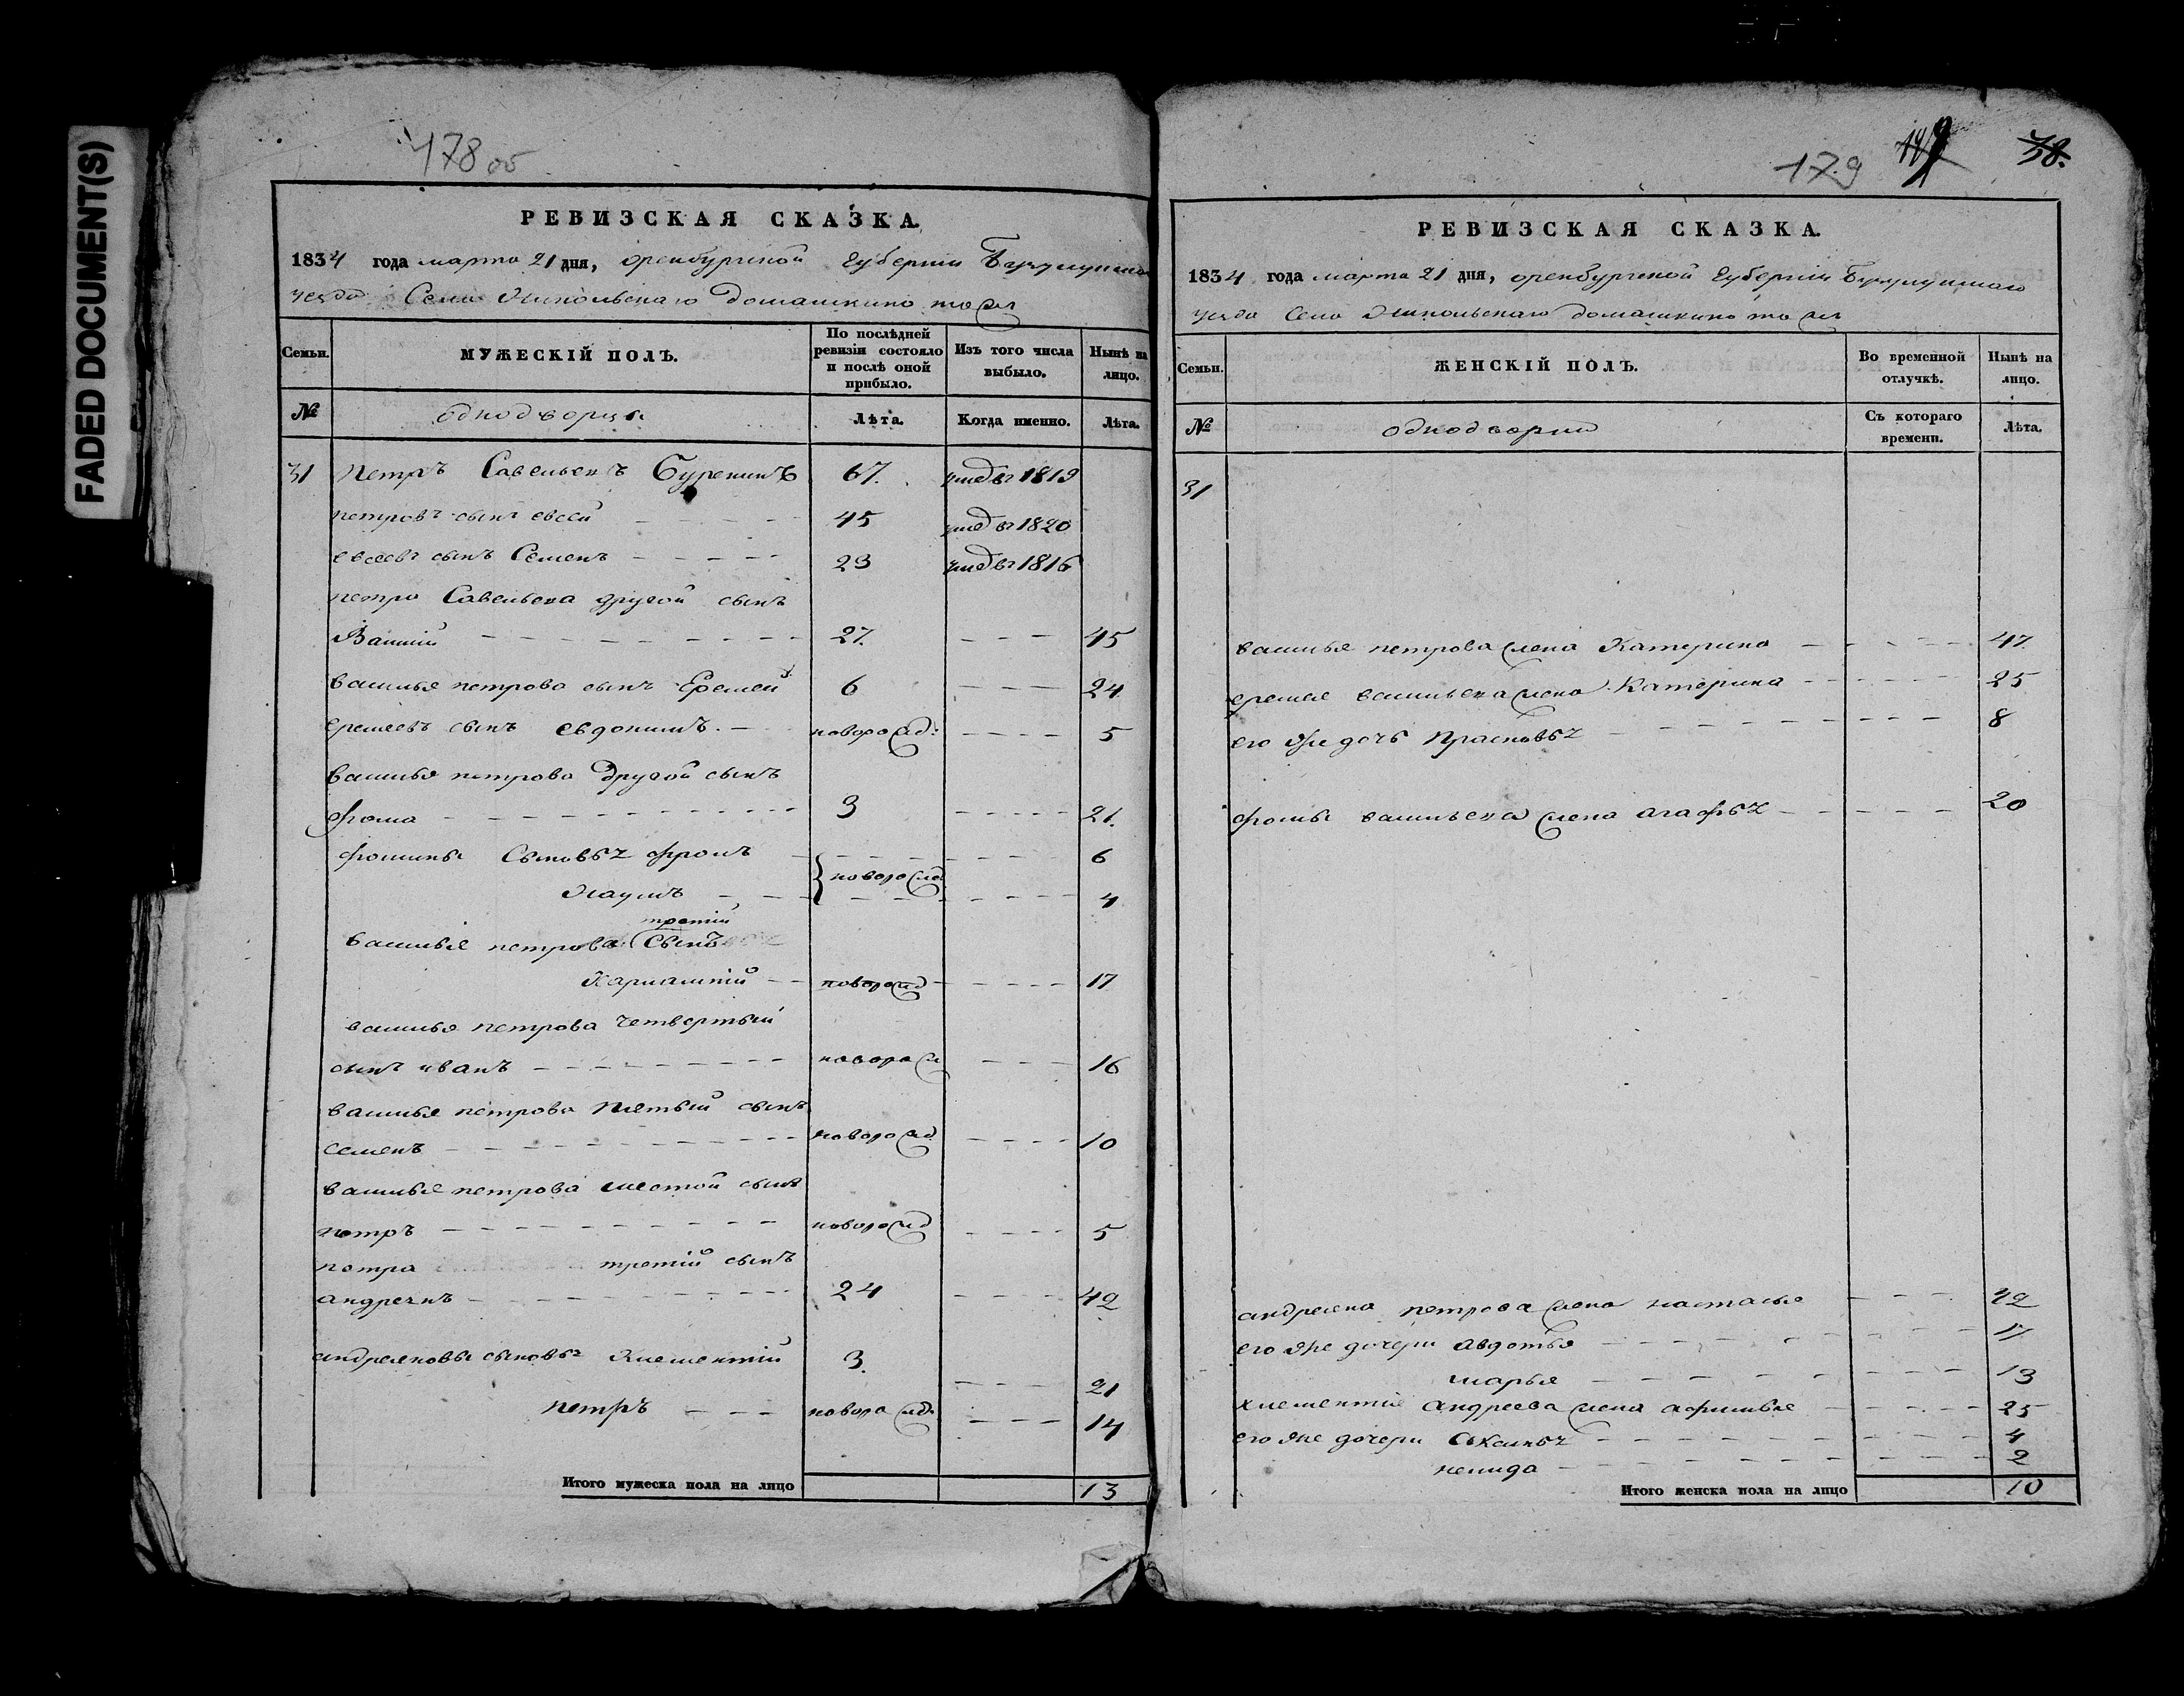 FADED DOCUMENT(S)
178 об
РЕВИЗСКАЯ СКАЗКА.
1834 года марта 21 дня, оренбургской губернии Бугулуцкаго
уезда Села Никольскаго домашкино то ж
Семьи. МУЖЕСКІЙ ПОЛЪ. По послѣдней ревизіи состояло и послѣ оной прибыло. Изъ того числа выбыло. Нынѣ на лицо.
№ однодворцы Лѣта. Когда именно. Лѣта.
31 Петръ Савельевъ Буренинъ 67. умер въ 1819
петровъ сынъ евсей 45 умер въ 1820
евсеевъ сынъ Семенъ 23 умер въ 1816
петра Савельева другой сынъ
Василий 27. 45
василья петрова сынъ Еремей 6 24
еремеевъ сынъ евдокимъ новорожд: 5
василья петрова другой сынъ
фома 3 21.
фомины Сыновья фролъ 6
новорожд
Наумъ 4
третий
василья петрова Сынъ
Харлампий новорожд 17
василья петрова четвертый
сынъ иванъ новорож 16
василья петрова пятый сынъ
семенъ новорожд 10
василья петрова шестой сынъ
петръ новорожд 5
петра третий сынъ
андреянъ 24 42
андреяновы сыновья Клементий 3. 21
петръ новорожд. 14
Итого мужеска пола на лицо 13
179 78.
РЕВИЗСКАЯ СКАЗКА.
1834 года марта 21 дня, оренбургской губернии Бугулуцкаго
уезда Села Никольскаго домашкино то ж
Семьи. ЖЕНСКІЙ ПОЛЪ. Во временной отлучкѣ. Нынѣ на лицо.
№ однодворки Съ котораго времени. Лѣта.
31
василья петрова жена Катерина 47.
еремея васильева жена Катерина 25
его же дочь Прасковья 8
фомы васильева жена агафья 20
андреяна петрова жена настасья 42
его же дочери авдотья 17
марья 13
клементия андреева жена афимья 25
его же дочери Аксинья 4
2
Итого женска пола на лицо 10